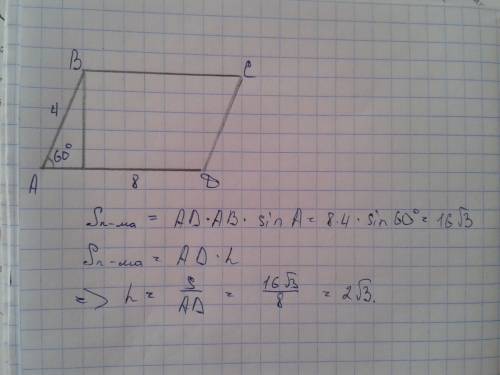 B
C
4
60°
A
8
D
Sп-ма = AD·AB·sin A = 8·4·sin 60° = 16√3
Sп-ма = AD·h
=> h = S/AD = 16√3/8 = 2√3.